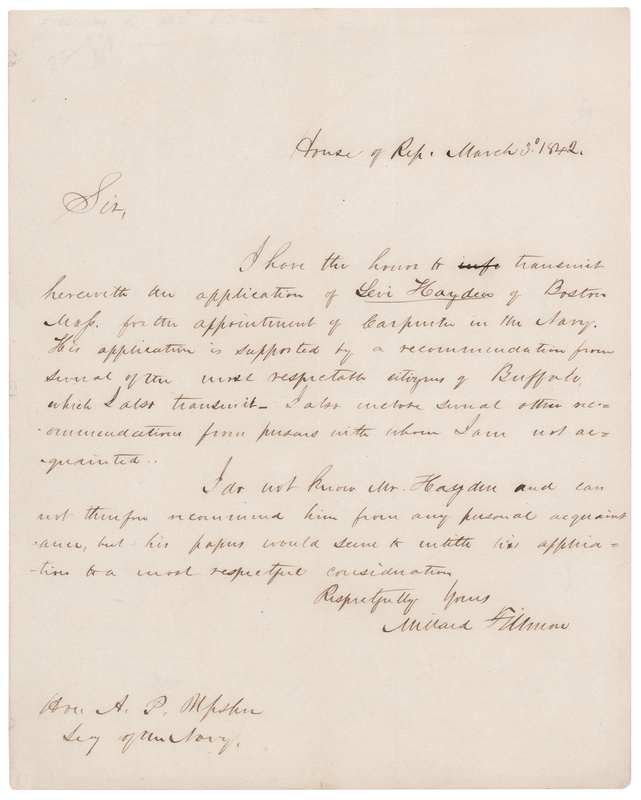 House of Rep. March 3d 1842.
Sir,
I have the honor to info transmit
herewith the application of Levi Hayden of Boston
Mass. for the appointment of Carpenter in the Navy.
His application is supported by a recommendation from
several of the most respectable citizens of Buffalo,
which I also transmit - I also inclose several other rec=
-ommendations from persons with whom I am not ac=
-quainted..
I do not know Mr. Hayden and can
not therefore recommend him from any personal acquaint
-ance, but his papers would seem to intitle his applica=
-tion to a most respectful consideration
Respectfully Yours
Millard Fillmore
Hon. A. P. Upshur
Secy of the Navy.